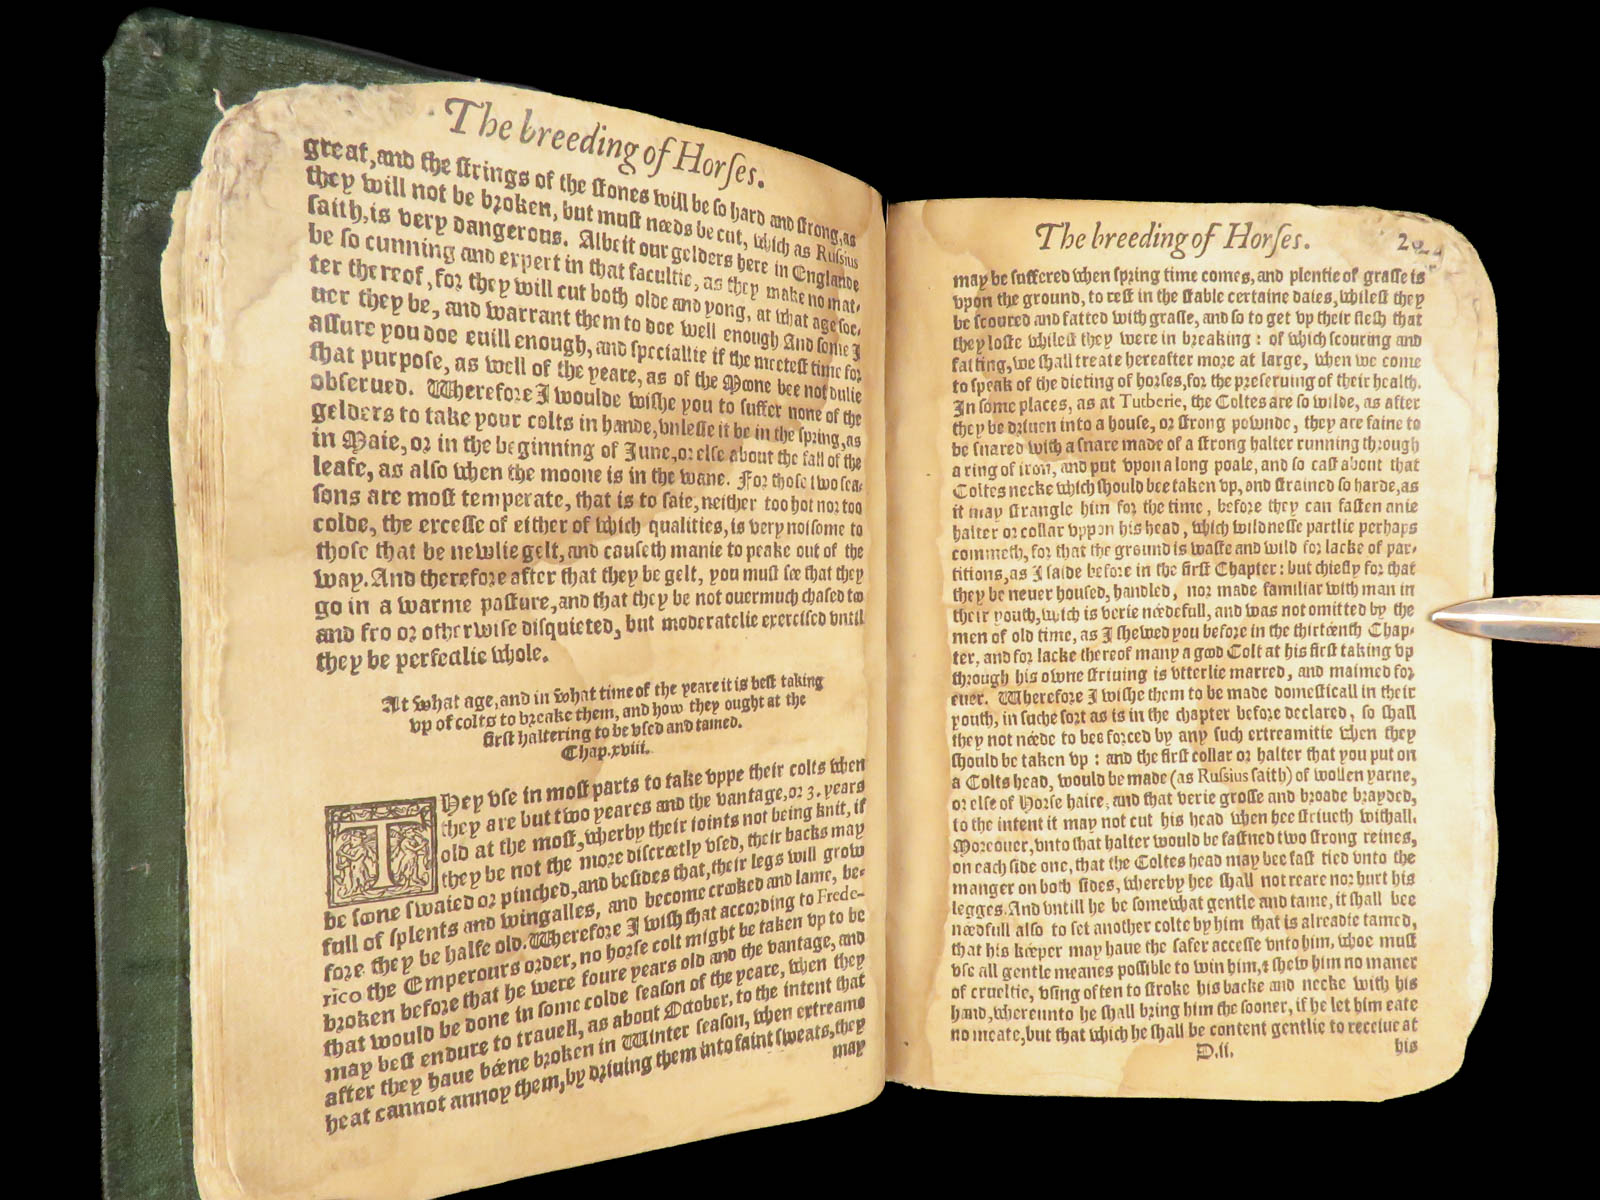 The breeding of Horses.
great, and the strings of the stones will be so hard and strong, as
they will not be broken, but must needs be cut, which as Russius
saith, is very dangerous. Albeit our gelders here in Englande
be so cunning and expert in that facultie, as they make no mat-
ter thereof, for they will cut both olde and yong, at what age soe-
uer they be, and warrant them to doe well enough And some I
assure you doe euill enough, and speciallie if the meetest time for
that purpose, as well of the yeare, as of the Moone bee not dulie
obserued. Wherefore I woulde wishe you to suffer none of the
gelders to take your colts in hande, vnlesse it be in the spring, as
in Maie, or in the beginning of June, or else about the fall of the
leafe, as also when the moone is in the wane. For those two sea-
sons are most temperate, that is to saie, neither too hot nor too
colde, the excesse of either of which qualities, is very noisome to
those that be newlie gelt, and causeth manie to peake out of the
way. And therefore after that they be gelt, you must see that they
go in a warme pasture, and that they be not ouermuch chased too
and fro or otherwise disquieted, but moderatelie exercised vntil
they be perfectlie whole.
At what age, and in what time of the yeare it is best taking
vp of colts to breake them, and how they ought at the
first haltering to be vsed and tamed.
Chap.xviii.
They vse in most parts to take vppe their colts when
they are but two yeares and the vantage, or 3. years
old at the most, wherby their ioints not being knit, if
they be not the more discreetly vsed, their backs may
be soone swaied or pinched, and besides that, their legs will grow
full of splents and wingalles, and become crooked and lame, be-
fore they be halfe old. Wherefore I wish that according to Frede-
rico the Emperours order, no horse colt might be taken vp to be
broken before that he were foure years old and the vantage, and
that would be done in some colde season of the yeare, when they
may best endure to trauell, as about October, to the intent that
after they haue béene broken in Winter season, when extreame
heat cannot annoy them, by driuing them into faint sweats, they
may
The breeding of Horses.
may be suffered when spring time comes, and plentie of grasse is
vpon the ground, to rest in the stable certaine daies, whilest they
be scoured and fatted with grasse, and so to get vp their flesh that
they loste whilest they were in breaking : of which scouring and
fatting, we shall treate hereafter more at large, when we come
to speak of the dieting of horses, for the preseruing of their health.
In some places, as at Tutberie, the Coltes are so wilde, as after
they be driuen into a house, or strong pownde, they are faine to
be snared with a snare made of a strong halter running through
a ring of iron, and put vpon a long poale, and so cast about that
Coltes necke which should bee taken vp, and strained so harde, as
it may strangle him for the time, before they can fasten anie
halter or collar vppon his head, which wildnesse partlie perhaps
commeth, for that the ground is waste and wild for lacke of par-
titions, as I saide before in the first Chapter: but chiefly for that
they be neuer housed, handled, nor made familiar with man in
their youth, wich is verie néedefull, and was not omitted by the
men of old time, as I shewed you before in the thirtéenth Chap-
ter, and for lacke thereof many a good Colt at his first taking vp
through his owne striuing is vtterlie marred, and maimed for
euer. Wherefore I wishe them to be made domesticall in their
youth, in suche sort as is in the chapter before declared, so shall
they not néede to bee forced by any such extreamitie when they
should be taken vp : and the first collar or halter that you put on
a Colts head, would be made (as Russius saith) of wollen yarne,
or else of Horse haire, and that verie grosse and broade brayded,
to the intent it may not cut his head when hee striueth withall.
Moreouer, vnto that halter would be fastned two strong reines,
on each side one, that the Coltes head may bee fast tied vnto the
manger on both sides, whereby hee shall not reare nor hurt his
legges. And vntill he be somewhat gentle and tame, it shall bee
néedfull also to set another colte by him that is alreadie tamed,
that his kéeper may haue the safer accesse vnto him, whoe must
vse all gentle meanes possible to win him, & shew him no maner
of crueltie, vsing often to stroke his backe and necke with his
hand, whereunto he shall bring him the sooner, if he let him eate
no meate, but that which he shall be content gentlie to receiue at
D.ii.
his